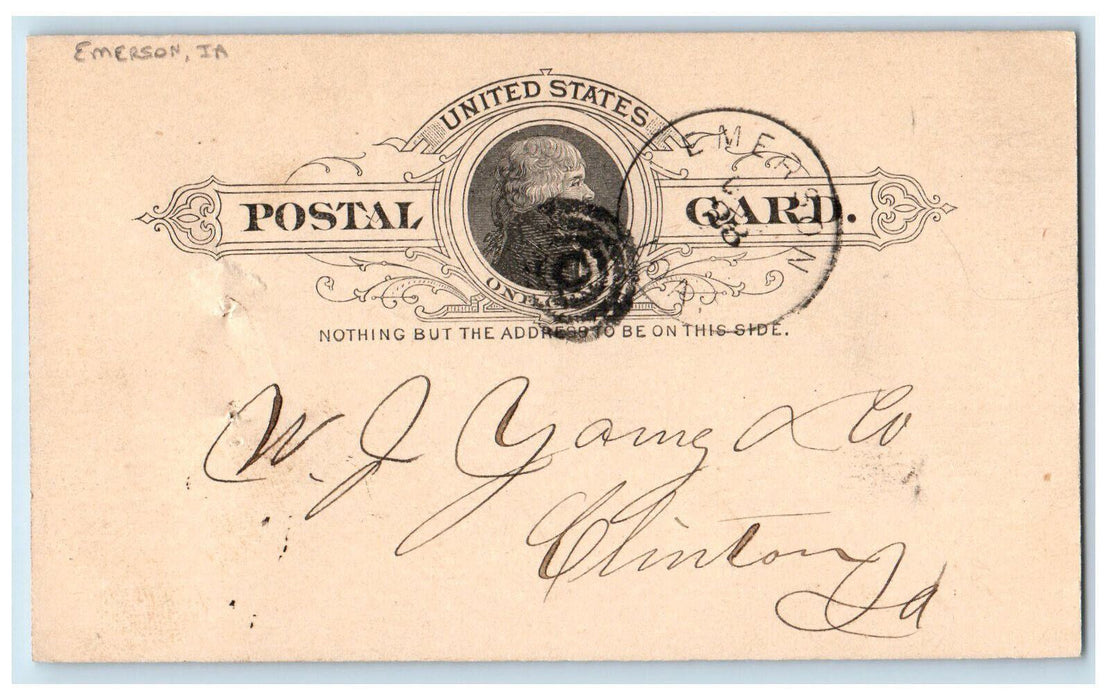 EMERSON, IA
UNITED STATES
POSTAL CARD.
ONE CENT
EMERSON
23
NOTHING BUT THE ADDRESS TO BE ON THIS SIDE.
W. J. Young & Co
Clinton
Ia